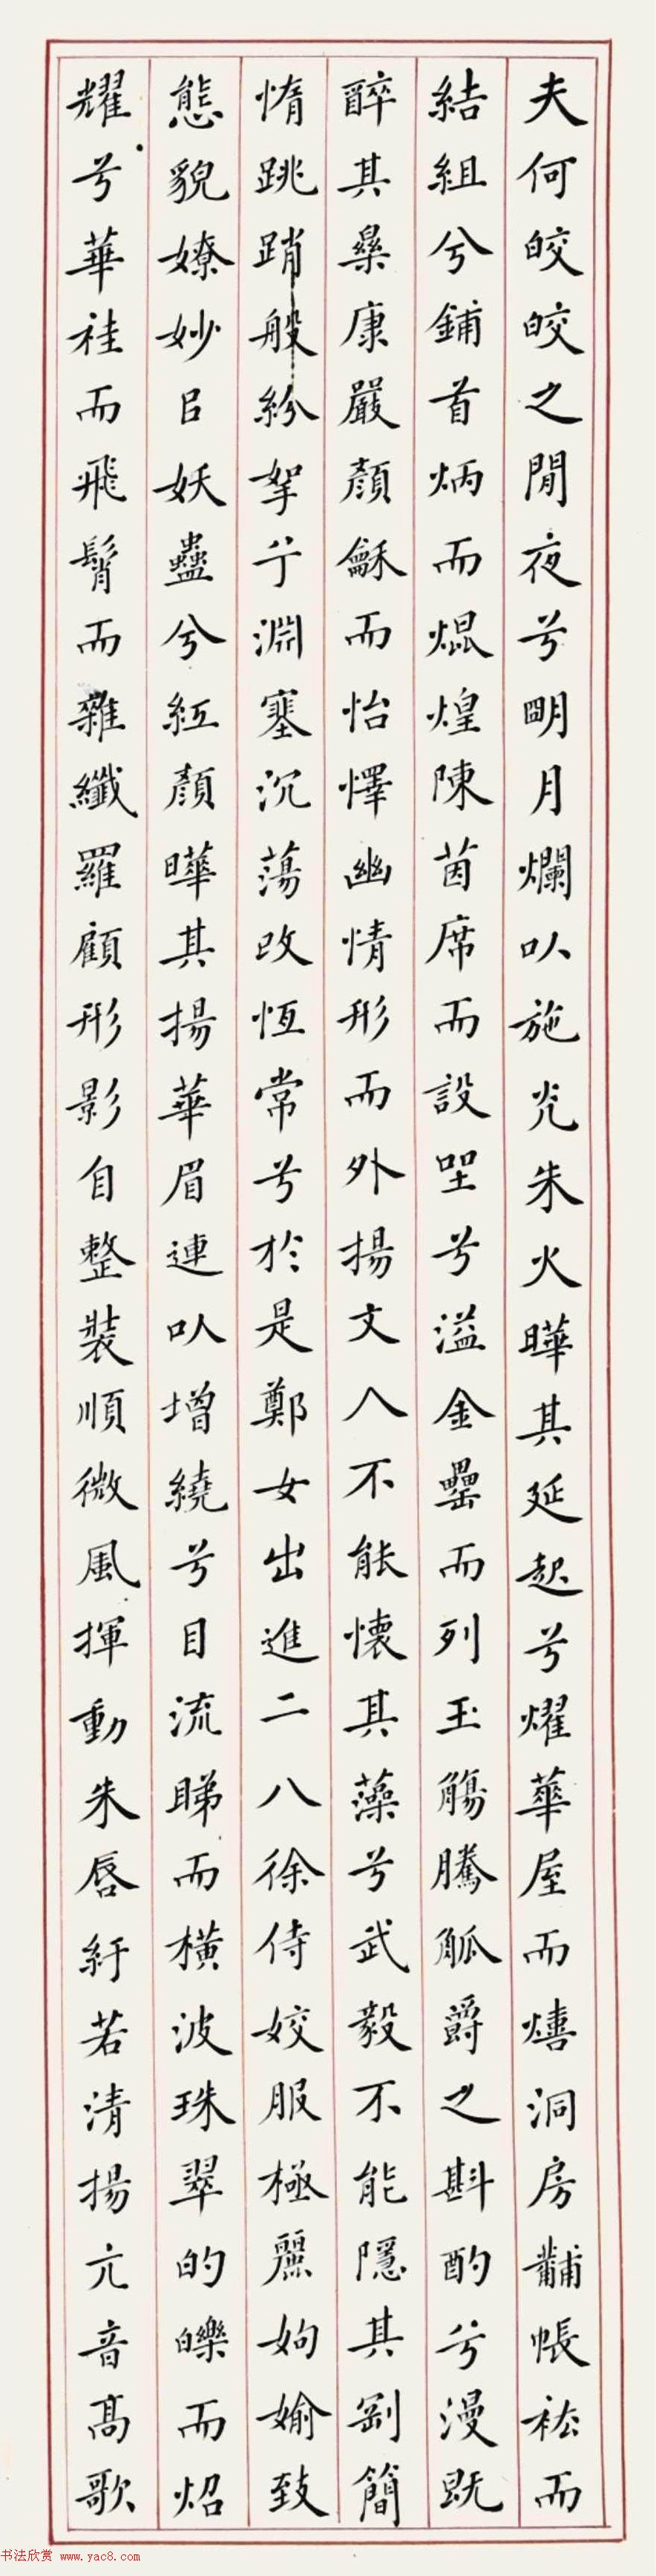 夫何皎皎之閒夜兮朙月爛㕥施灮朱火曄其延起兮燿華屋而熺洞房黼帳袪而
結組兮鋪首炳而焜煌陳茵席而設坐兮溢金罍而列玉觴騰觚爵之斟酌兮漫既
醉其樂康嚴顏龢而怡懌幽情形而外揚文人不能懷其藻兮武毅不能隱其剛簡
惰跳踃般紛挐兮淵塞沉蕩改恆常兮於是鄭女出進二八徐侍姣服極麗姁媮致
態貌嫽妙㠯妖蠱兮紅顏曄其揚華眉連㕥增繞兮目流睇而橫波珠翠的皪而炤
耀兮華袿而飛髾而雜纖羅顧形影自整裝順微風揮動朱唇紆若清揚亢音高歌
书法欣赏 www.yac8.com